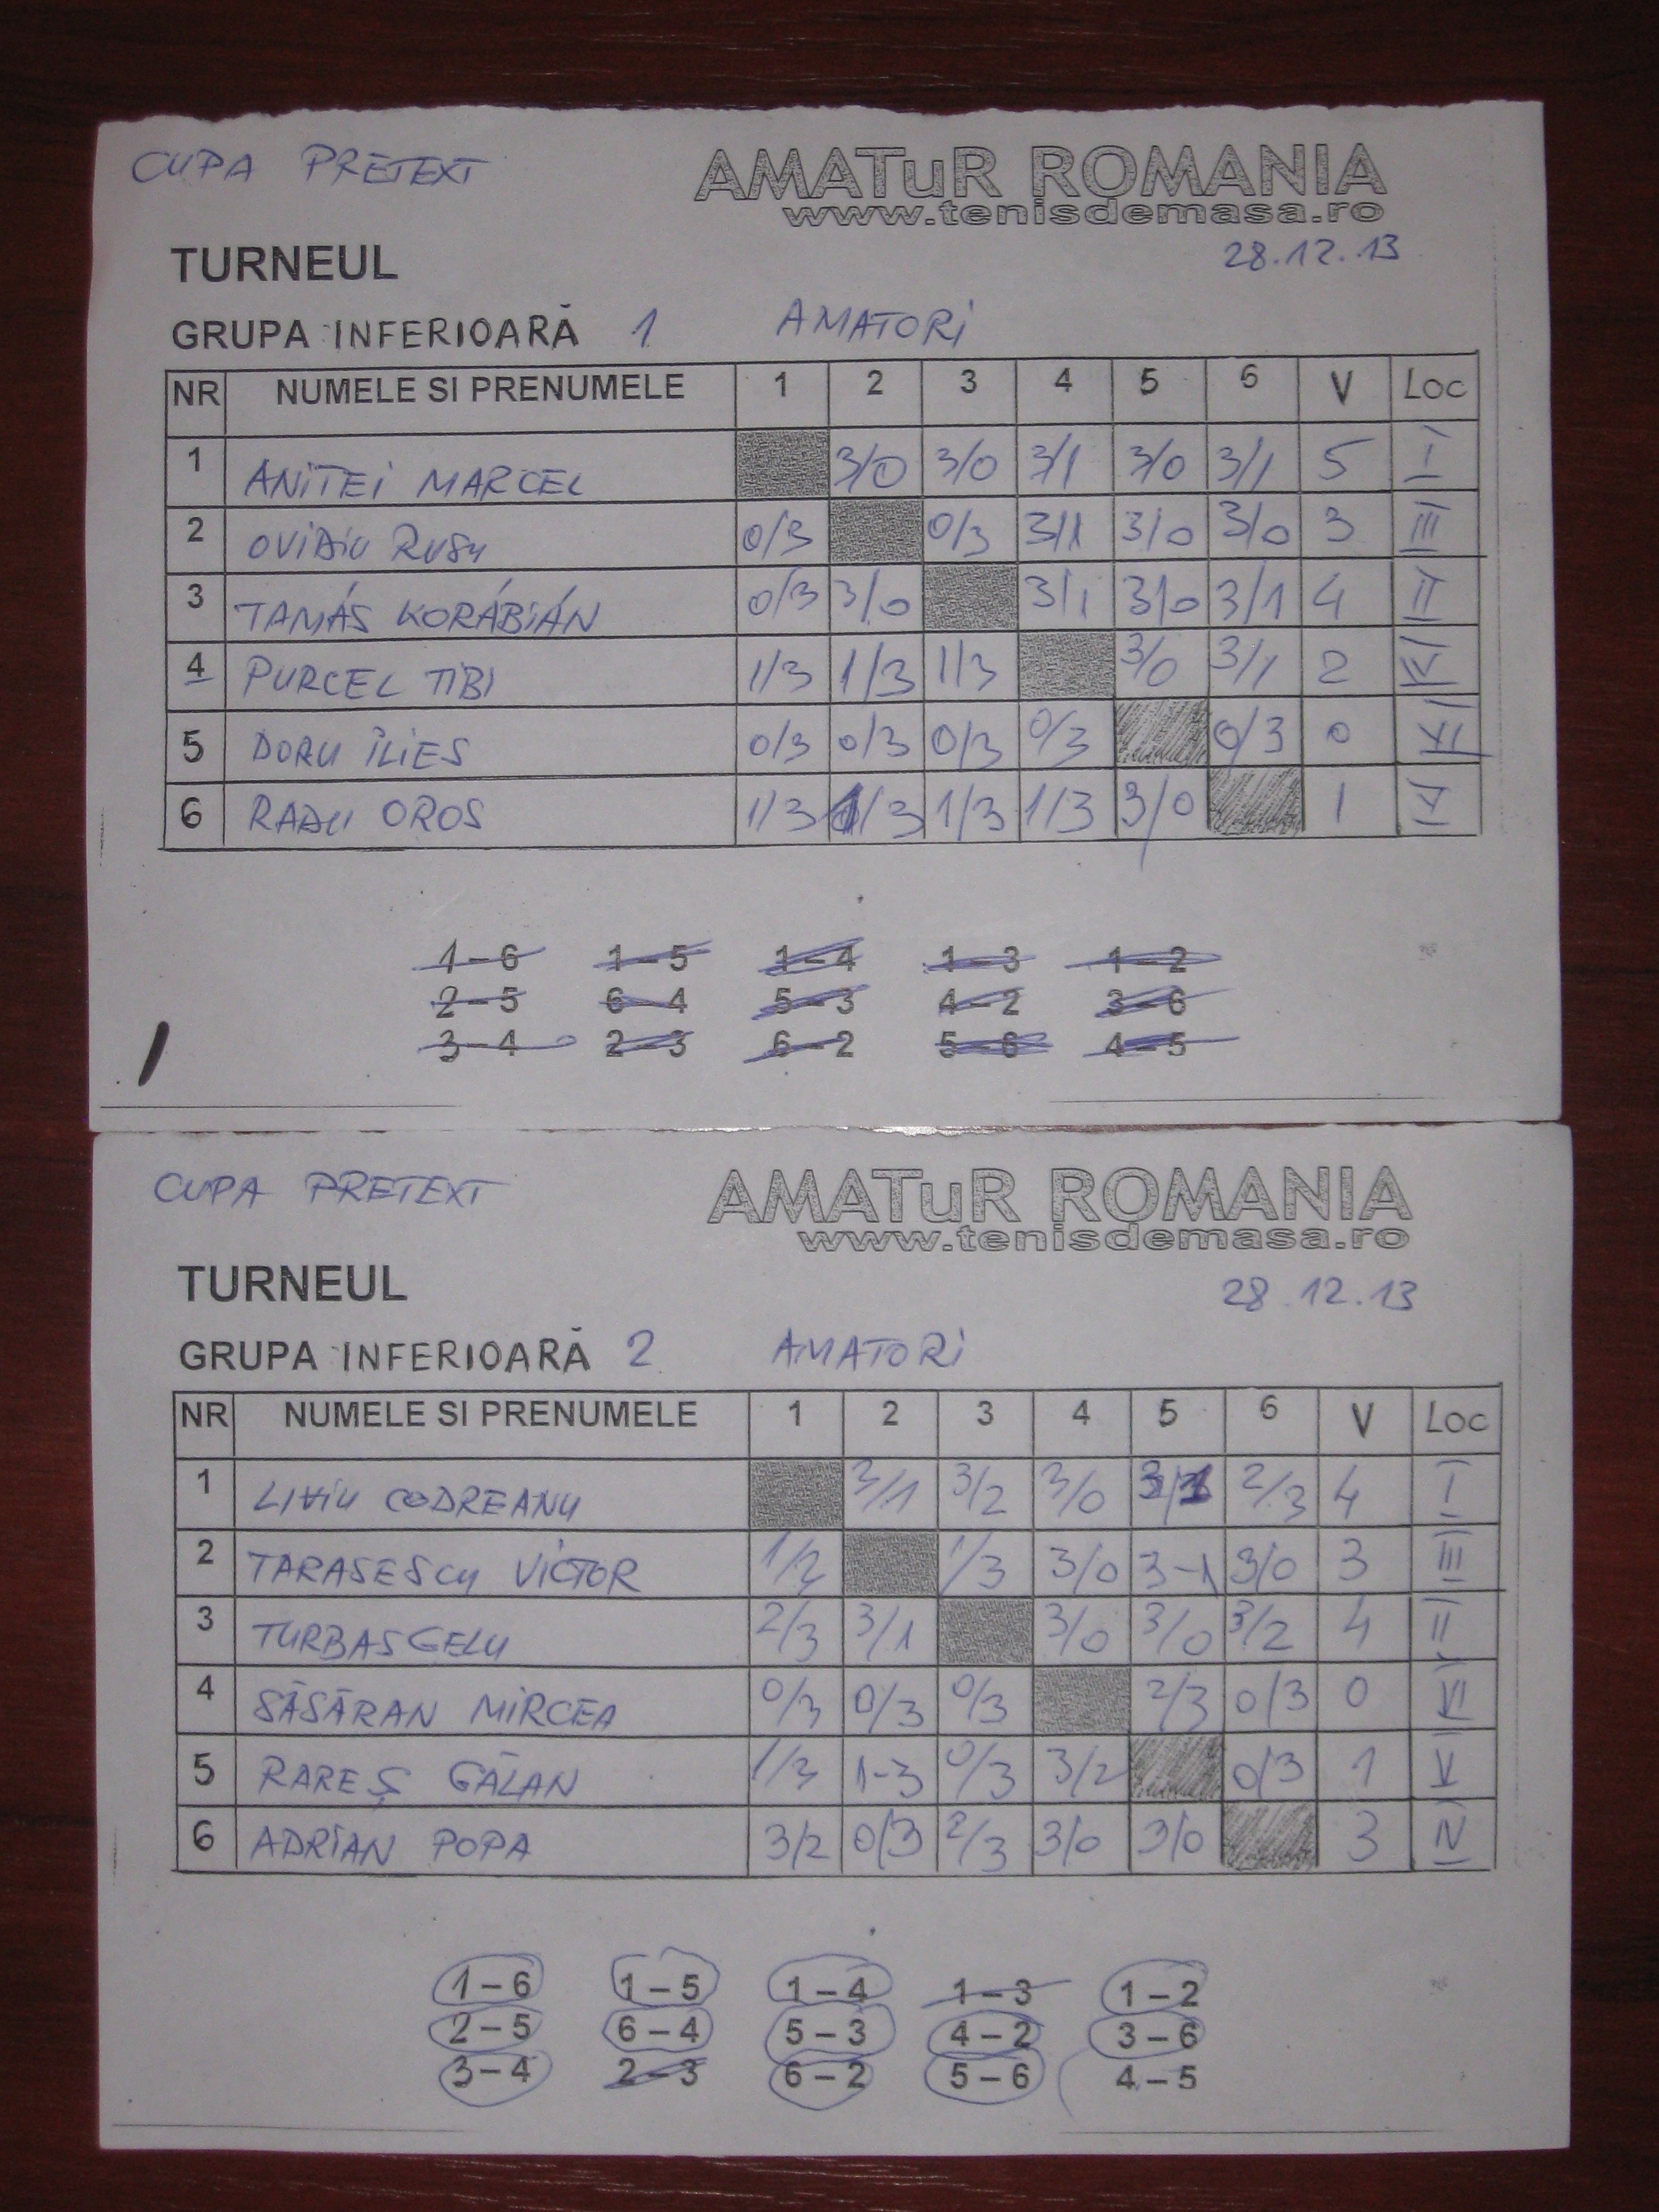 CUPA PRETEXT
AMATuR ROMANIA
www.tenisdemasa.ro
TURNEUL
28.12.13
GRUPA INFERIOARĂ 1 AMATORI
NR NUMELE SI PRENUMELE 1 2 3 4 5 6 V Loc
1 ANITEI MARCEL 3/0 3/0 3/1 3/0 3/1 5 I
2 OVIDIU RUSU 0/3 0/3 3/1 3/0 3/0 3 III
3 TAMÁS KORÁBIÁN 0/3 3/0 3/1 3/0 3/1 4 II
4 PURCEL TIBI 1/3 1/3 1/3 3/0 3/1 2 IV
5 DORU ILIES 0/3 0/3 0/3 0/3 0/3 0 VI
6 RADU OROS 1/3 1/3 1/3 1/3 3/0 1 V
1-6 1-5 1-4 1-3 1-2
2-5 6-4 5-3 4-2 3-6
3-4 2-3 6-2 5-6 4-5
CUPA PRETEXT
AMATuR ROMANIA
www.tenisdemasa.ro
TURNEUL
28.12.13
GRUPA INFERIOARĂ 2 AMATORI
NR NUMELE SI PRENUMELE 1 2 3 4 5 6 V Loc
1 LIVIU CODREANU 3/1 3/2 3/0 3/1 2/3 4 I
2 TARASESCU VICTOR 1/2 1/3 3/0 3-1 3/0 3 III
3 TURBAS GELU 2/3 3/1 3/0 3/0 3/2 4 II
4 SĂSĂRAN MIRCEA 0/3 0/3 0/3 2/3 0/3 0 VI
5 RAREȘ GĂLAN 1/3 1-3 0/3 3/2 0/3 1 V
6 ADRIAN POPA 3/2 0/3 2/3 3/0 3/0 3 IV
1-6 1-5 1-4 1-3 1-2
2-5 6-4 5-3 4-2 3-6
3-4 2-3 6-2 5-6 4-5